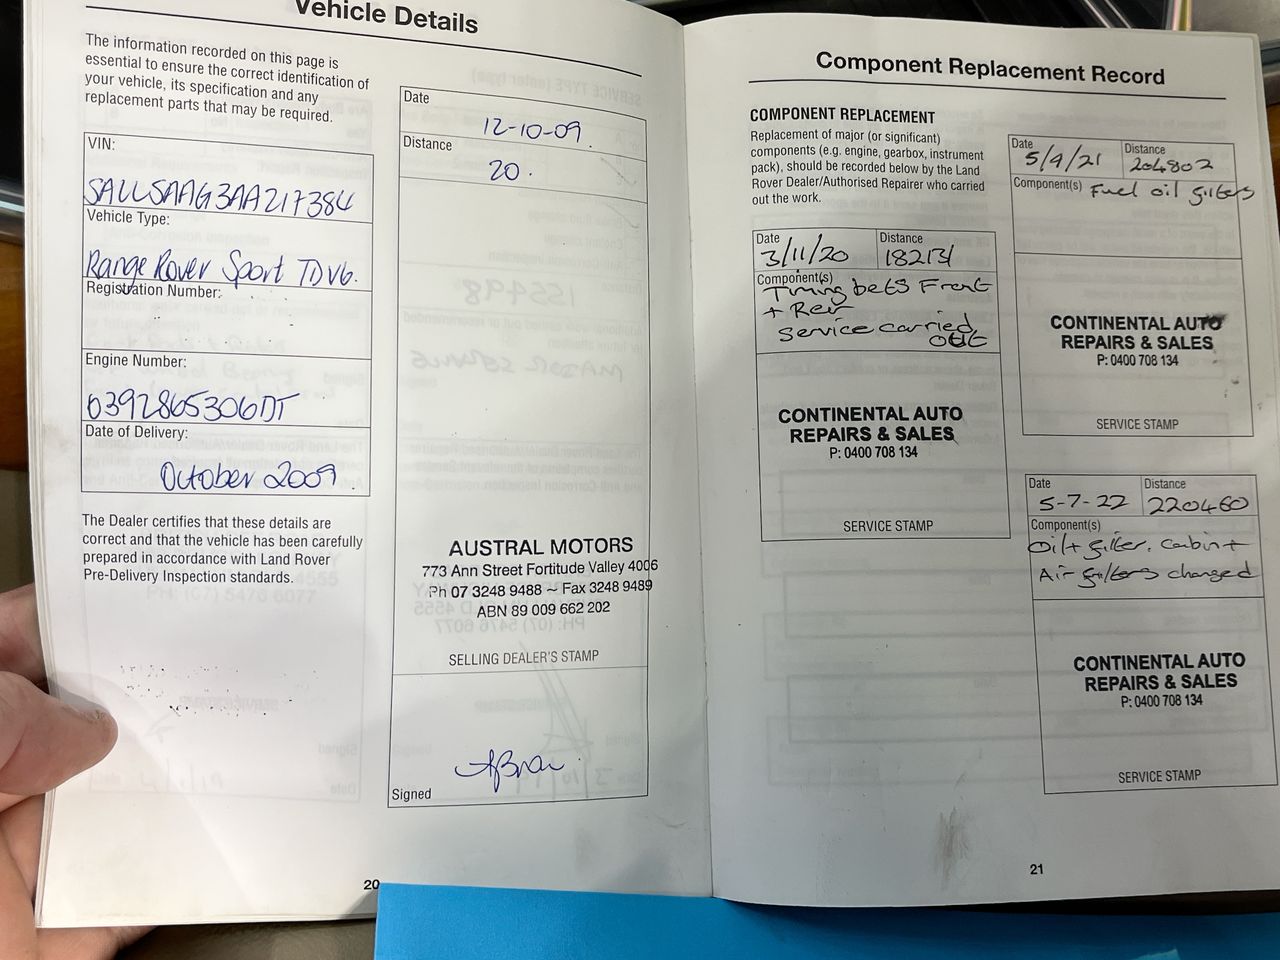 Vehicle Details
The information recorded on this page is
essential to ensure the correct identification of
your vehicle, its specification and any
replacement parts that may be required.
VIN:
SALLSAAG3AA217384
Vehicle Type:
Range Rover Sport TDV6.
Registration Number:
Engine Number:
0392865306DT
Date of Delivery:
October 2009.
The Dealer certifies that these details are
correct and that the vehicle has been carefully
prepared in accordance with Land Rover
Pre-Delivery Inspection standards.
Date
12-10-09.
Distance
20.
AUSTRAL MOTORS
773 Ann Street Fortitude Valley 4006
Ph 07 3248 9488 ~ Fax 3248 9489
ABN 89 009 662 202
SELLING DEALER'S STAMP
Signed
20
Component Replacement Record
COMPONENT REPLACEMENT
Replacement of major (or significant)
components (e.g. engine, gearbox, instrument
pack), should be recorded below by the Land
Rover Dealer/Authorised Repairer who carried
out the work.
Date Distance
3/11/20 182131
Component(s)
Timing belts Front
+ Rear
service carried
out
CONTINENTAL AUTO
REPAIRS & SALES
P: 0400 708 134
SERVICE STAMP
Date Distance
5/4/21 204802
Component(s) Fuel oil filters
CONTINENTAL AUTO
REPAIRS & SALES
P: 0400 708 134
SERVICE STAMP
Date Distance
5-7-22 220460
Component(s)
Oil + filter. Cabin +
Air filters changed
CONTINENTAL AUTO
REPAIRS & SALES
P: 0400 708 134
SERVICE STAMP
21